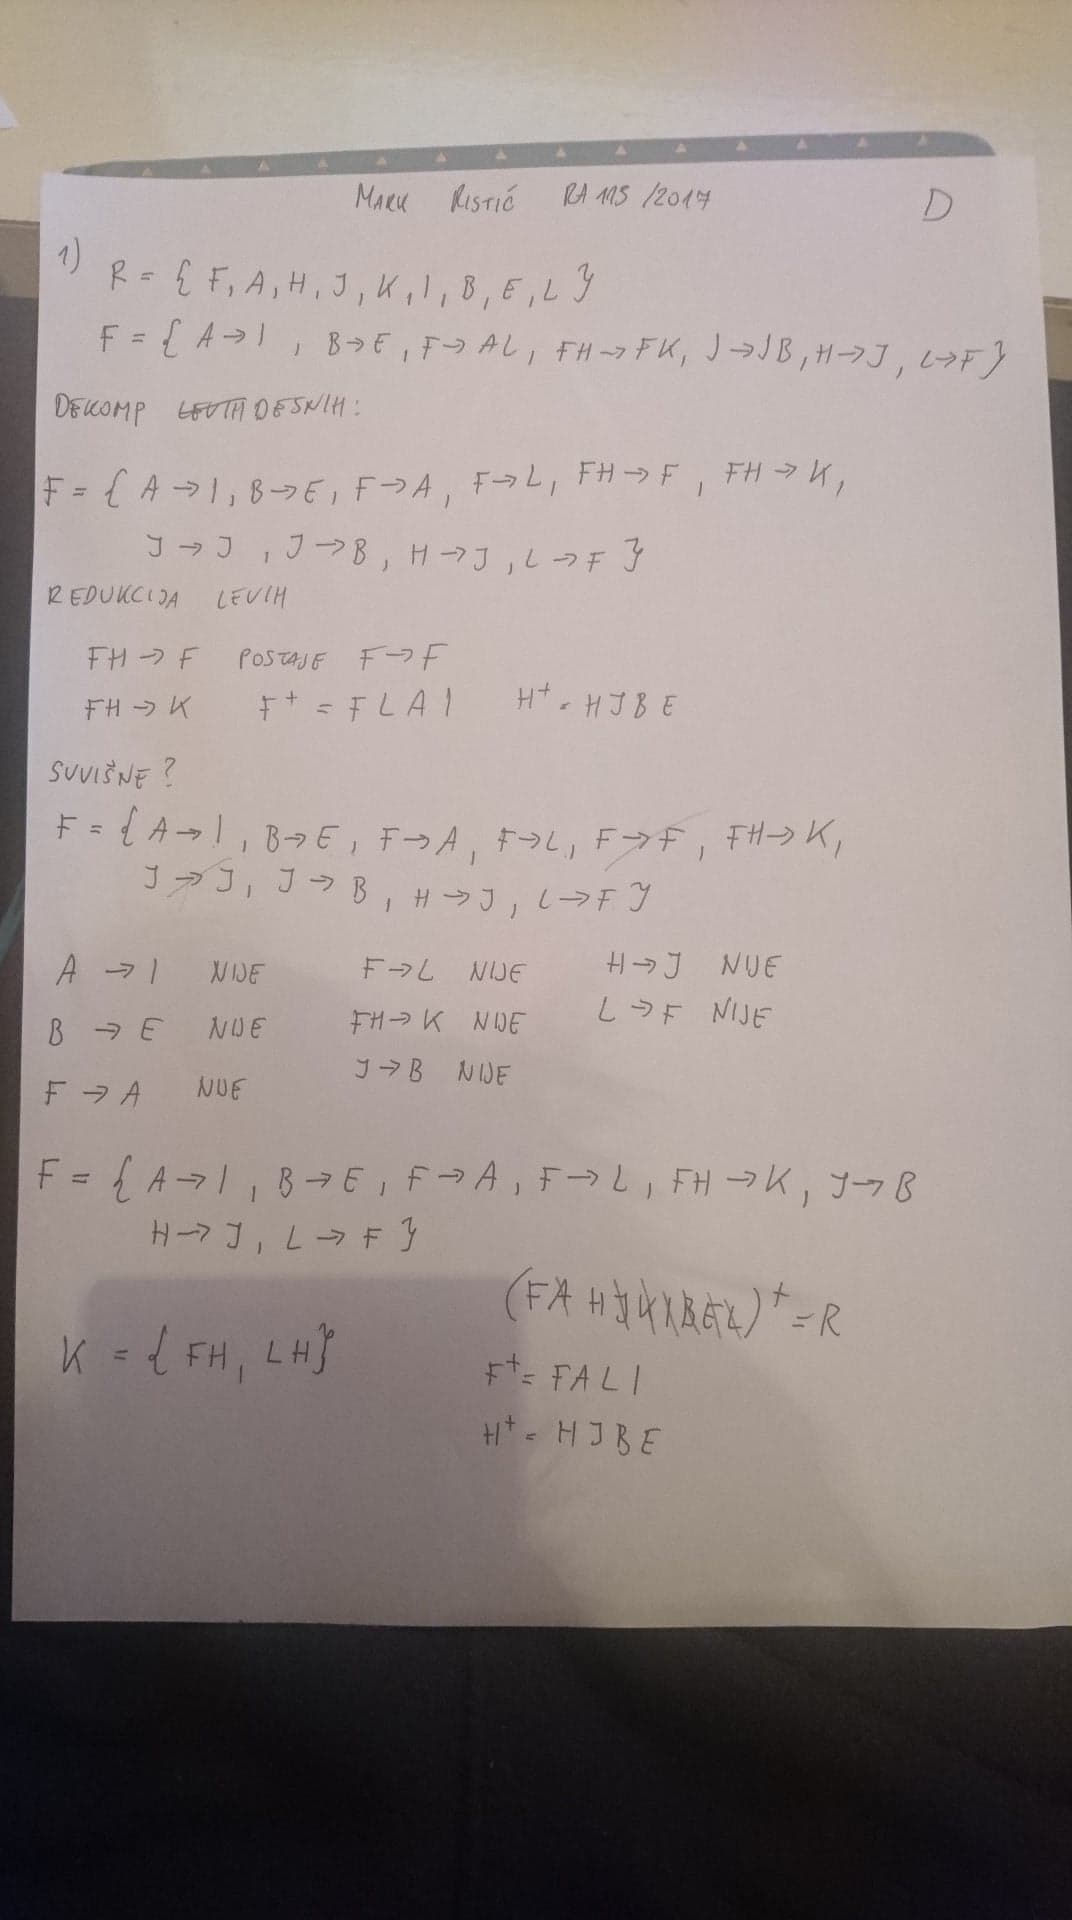 MARK RISTIĆ RA 115/2017 D
1) R = { F, A, H, J, K, I, B, E, L }
F = { A → I , B → E , F → AL , FH → FK, J → JB, H → J , L → F }
DEKOMP LEVIH DESNIH :
F = { A → I , B → E , F → A , F → L , FH → F , FH → K ,
J → J , J → B , H → J , L → F }
REDUKCIJA LEVIH
FH → F POSTAJE F → F
FH → K F+ = F L A I H+ = H J B E
SUVIŠNE ?
F = { A → I , B → E , F → A , F → L , F → F , FH → K ,
J → J , J → B , H → J , L → F }
A → I NIJE F → L NIJE H → J NIJE
B → E NIJE FH → K NIJE L → F NIJE
F → A NIJE J → B NIJE
F = { A → I , B → E , F → A , F → L , FH → K , J → B
H → J , L → F }
(FAHJKIBEL)+ = R
K = { FH , LH }
F+ = FALI
H+ = HJBE